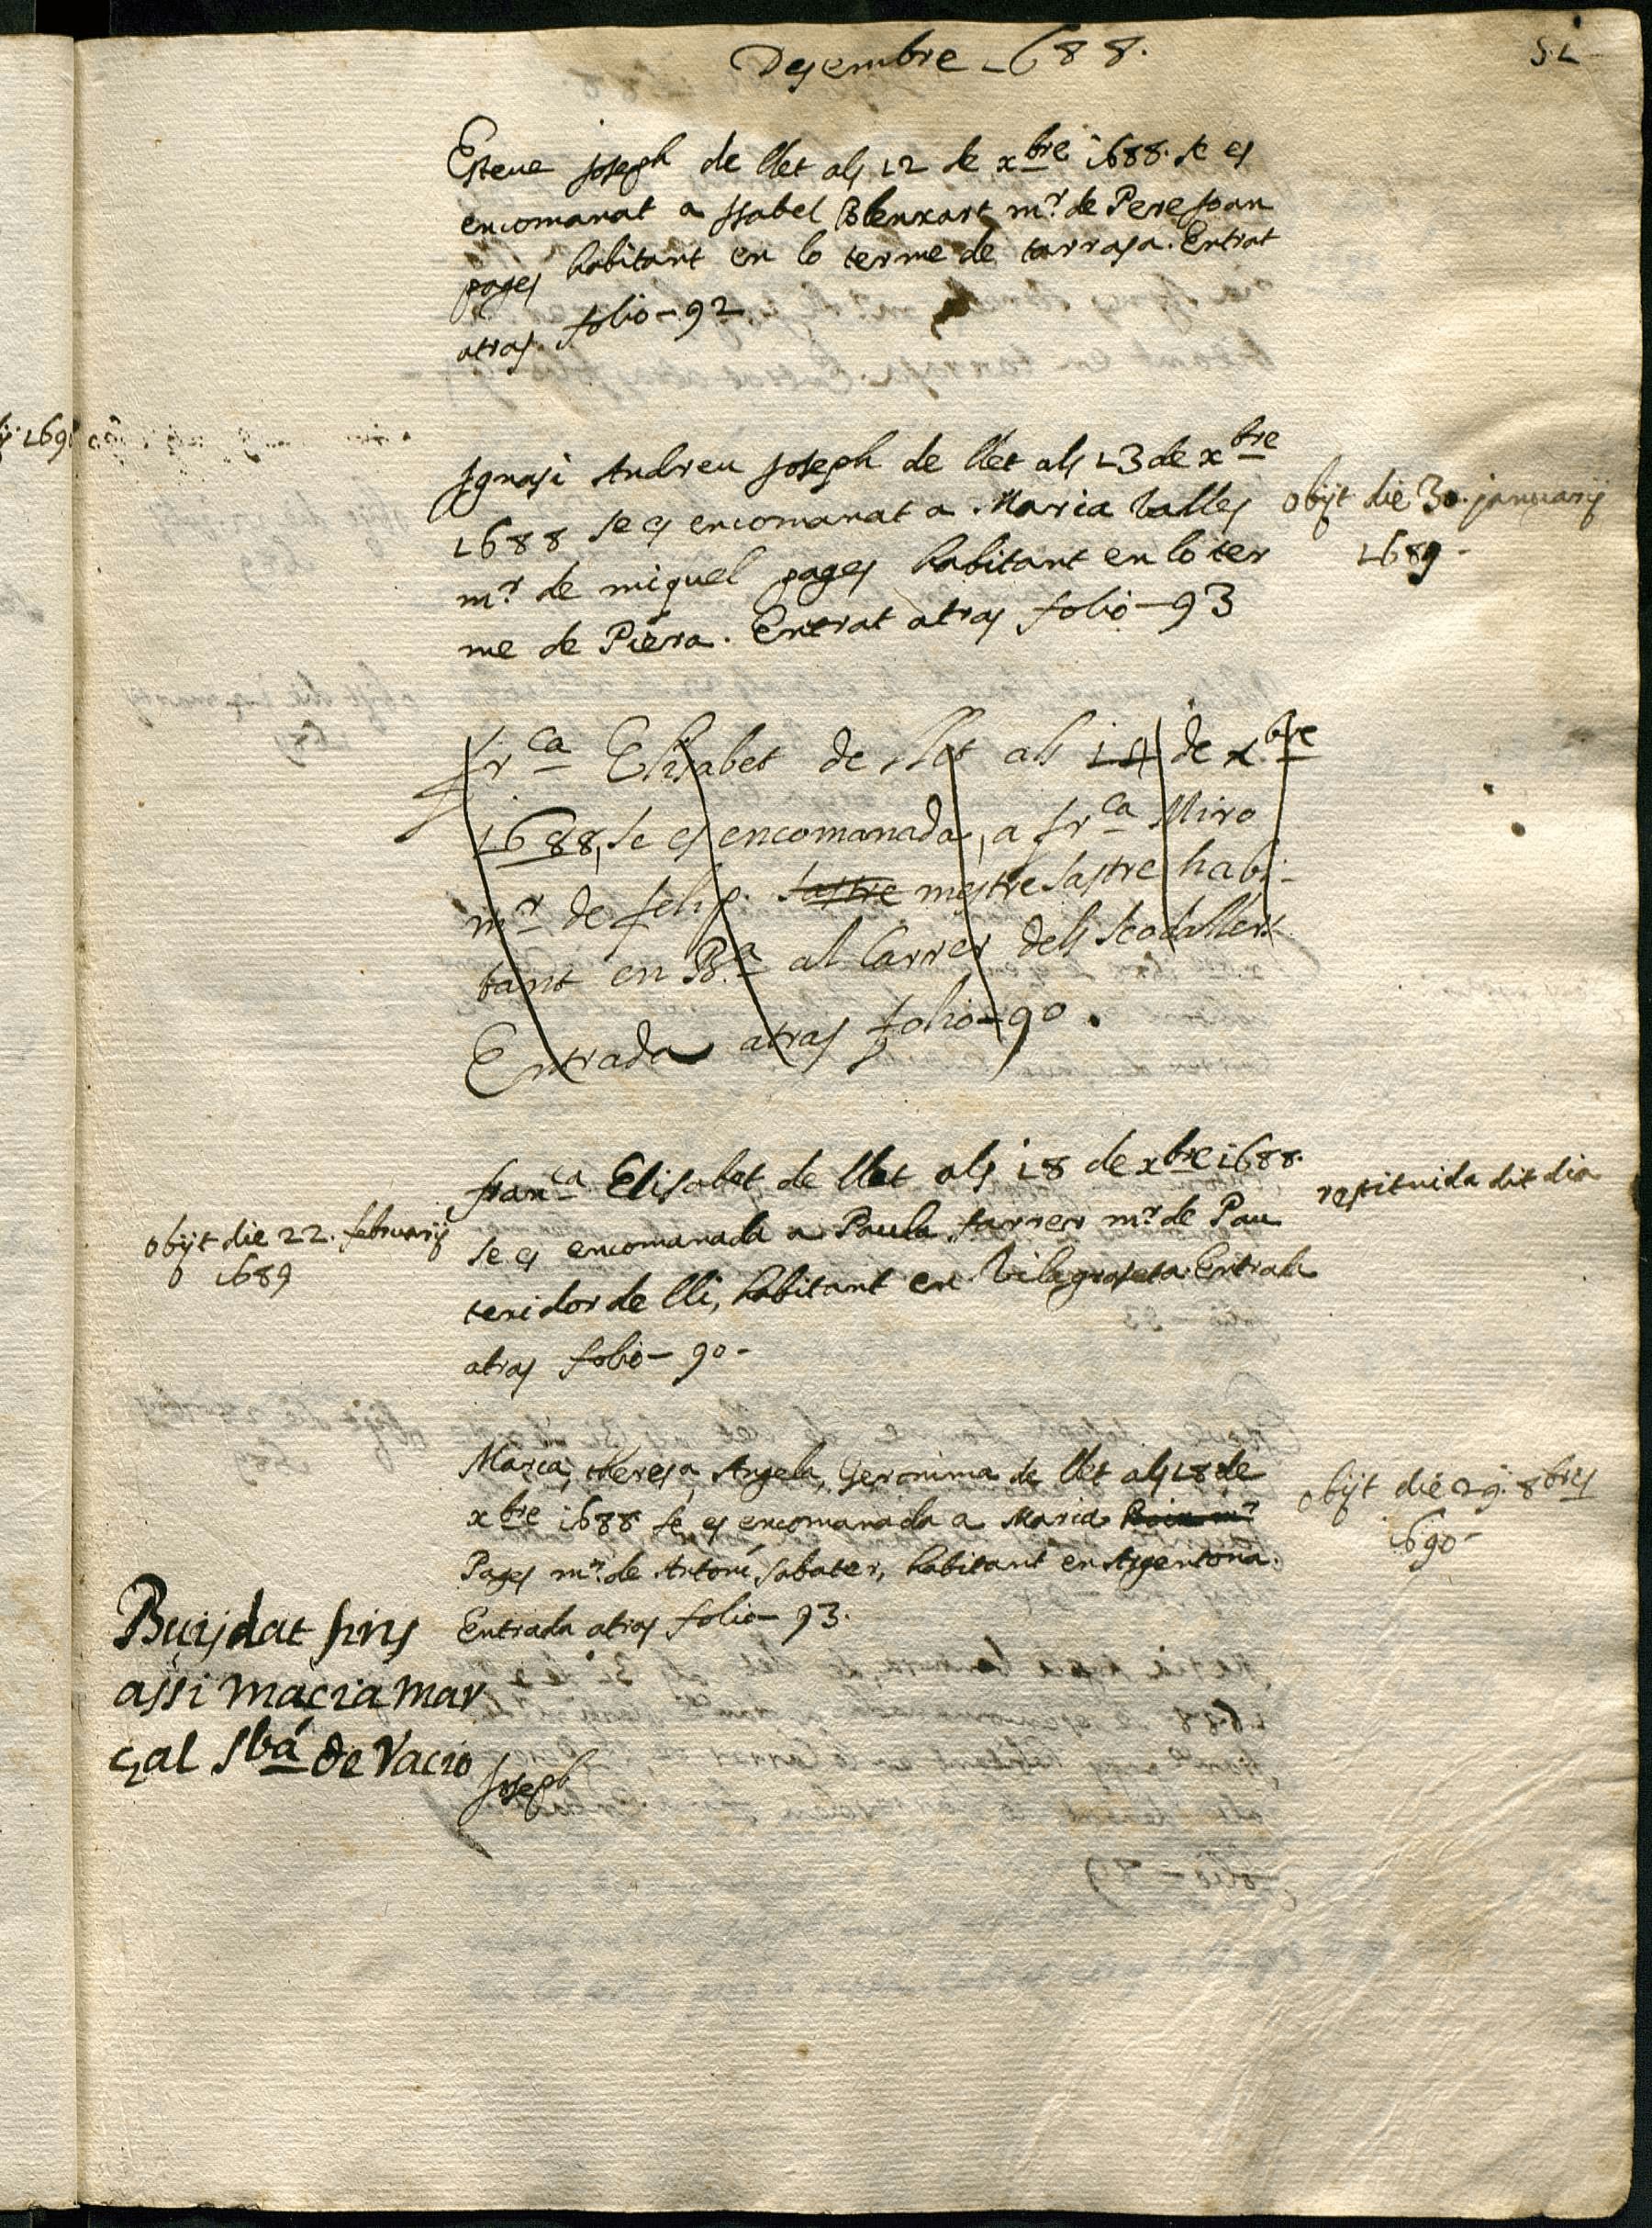 Desembre 1688.
51
Esteve Joseph de llet als 12 de xbre 1688. se es
encomanat a Isabel Blenxart mr. de Pere Joan
pages habitant en lo terme de tarrasa. Entrat
atras. folio - 92
Ignasi Andreu Joseph de llet als 13 de xbre
1688 se es encomanat a Maria Valles
mr. de miquel pages habitant en lo ter
me de Piera. Entrat atras folio - 93
obijt die 30. januarij
1689 -
frca Elisabet de llet als 14 de xbre
1688, se es encomanada, a frca Miro
mr de felip. sastre mestre Sastre habi-
tant en Ba. al Carrer dels Scodallers
Entrada atras folio - 90.
franca Elisabet de llet als 18 de xbre 1688.
se es encomanada a Paula farrer mr. de Pau
texidor de lli, habitant en Vilagraseta. Entrada
atras folio - 90 -
restituida dit dia
obijt die 22. februarij
1689
Maria, theresa, Angela, Geronima de llet als 18 de
xbre 1688 se es encomanada a Maria
Pages mr. de Antoni Sabater, habitant en Argentona.
Entrada atras folio - 93.
obijt die 29. 8bris
1690 -
Buijdat fins
assi macia mar
çal Sbá de Vacio
Joseph